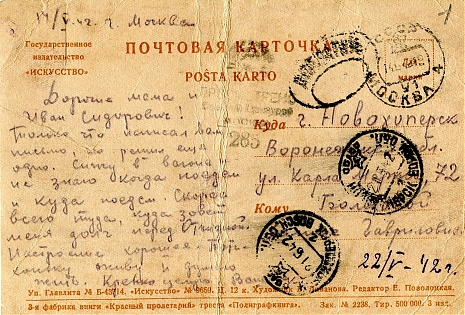 14/V-42 г. г. Москва
1
Государственное
издательство
«ИСКУССТВО»
ПОЧТОВАЯ КАРТОЧКА
POŜTA KARTO
МОСКВА
285
Дорогие мама и
Иван Сидорович!
Только что написал Вам
письмо, но решил еще
одно. Сижу в вагоне
не знаю когда поедем
и куда поедем. Скорей
всего туда, куда зовет
меня долг перед Отчизной.
Настроение хорошее.
живу и думаю
жить. Крепко целую Вас
Куда г. Новохоперск
ул. Карла Маркса 72
Кому
Гавриловне
22/V-42 г.
Уп. Главлита № «Искусство» № 8659. Ц. 12 к. Редактор Е. Поволоцкая.
3-я фабрика книги «Красный пролетарий» треста «Полиграфкнига». Зак. № 2238. Тир. 500 000. 3 изд.